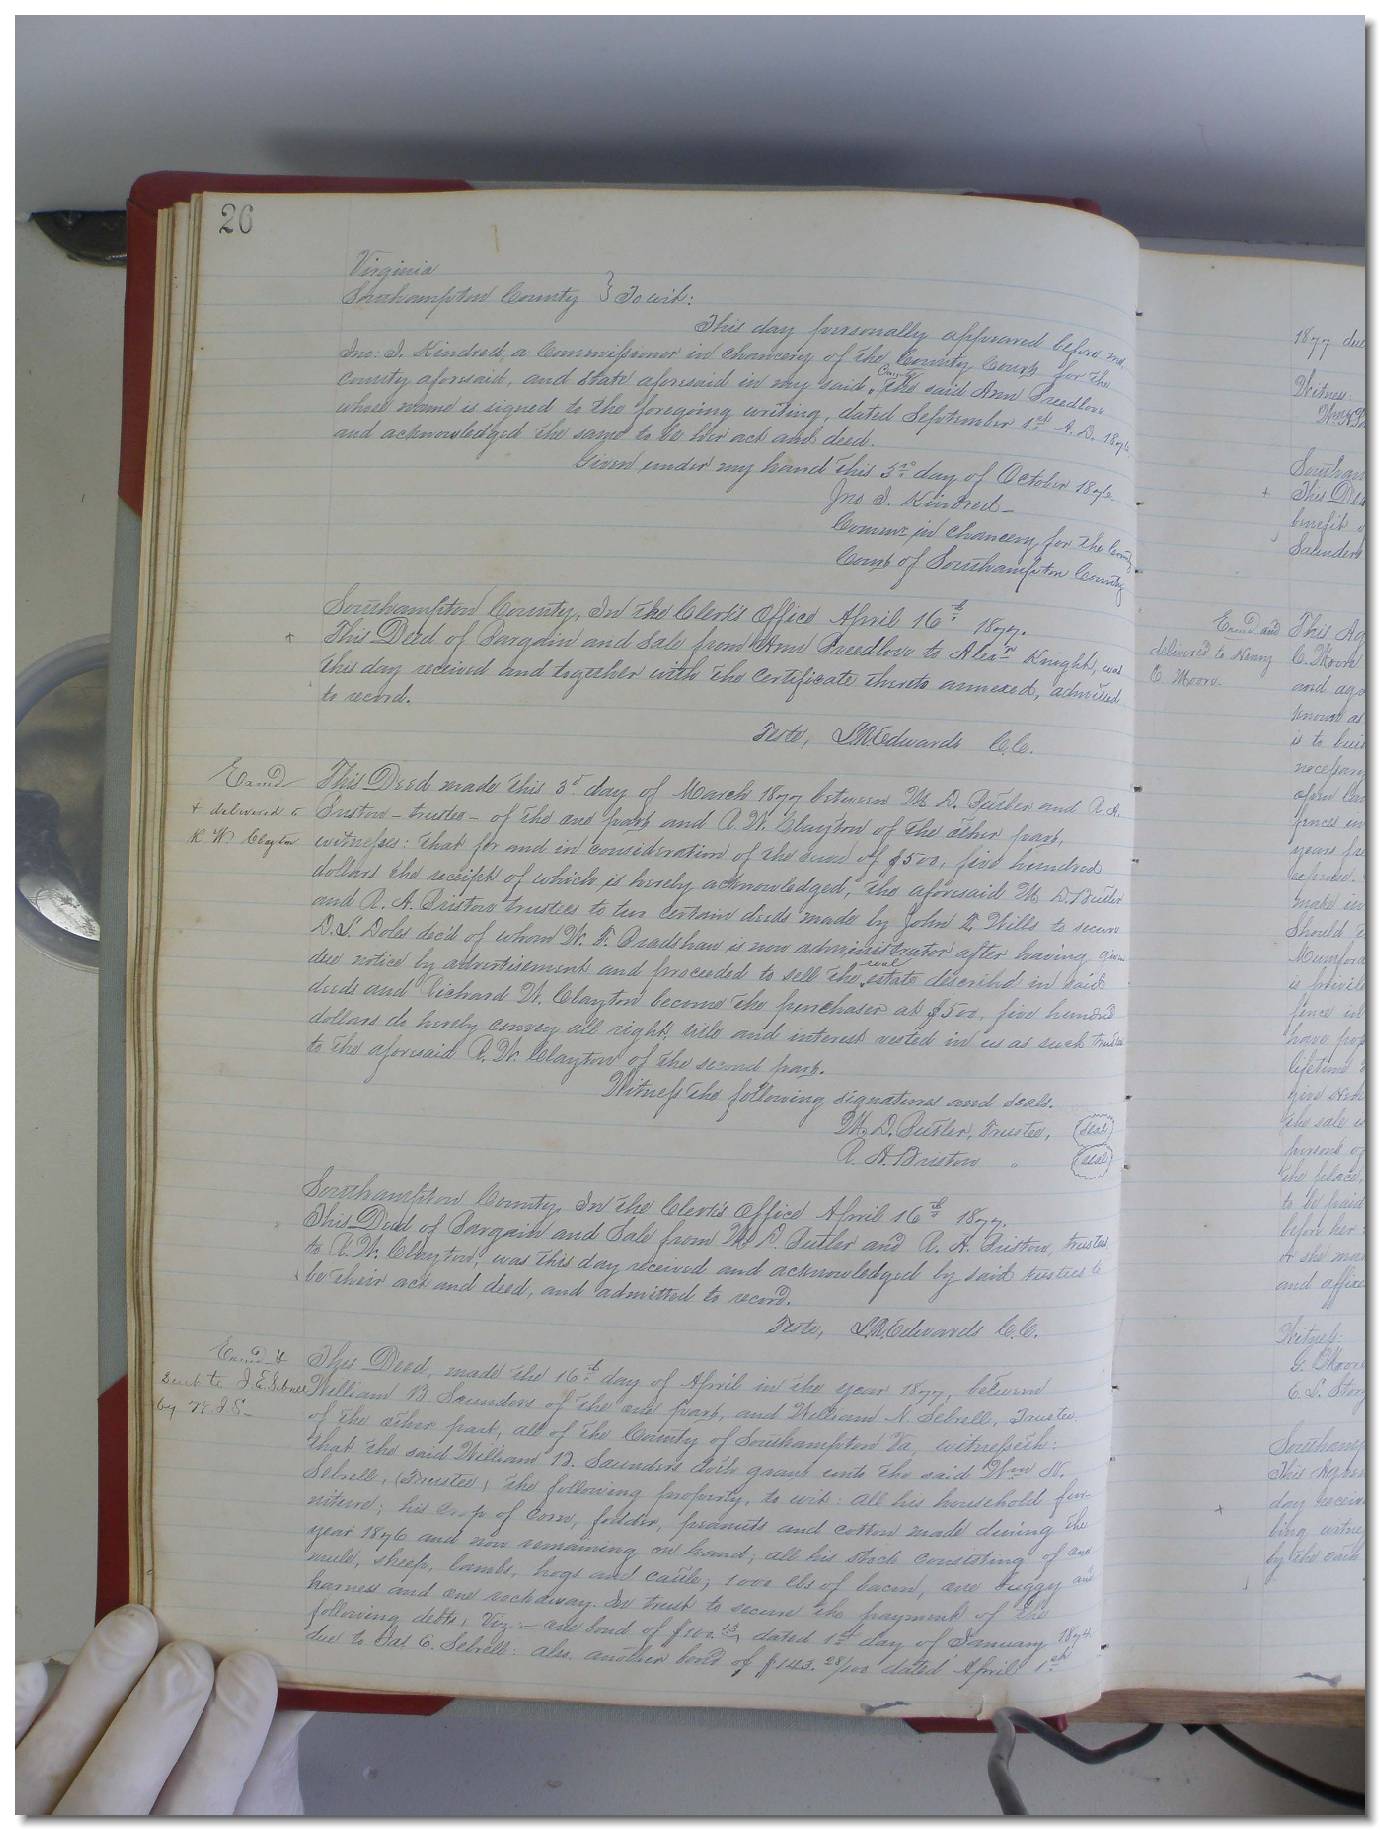 26
Virginia
Southampton County } To wit:
This day personally appeared before me
Jno. J. Kindred, a Commissioner in chancery of the County Court for the
county aforesaid, and State aforesaid in my said County the said Ann Breedlove
whose name is signed to the foregoing writing, dated September 1st A. D. 1876
and acknowledged the same to be her act and deed.
Given under my hand this 3rd day of October 1876
Jno J. Kindred
Commr in chancery for the County
Court of Southampton County
Southampton County, In the Clerk's Office April 16th 1877.
This Deed of Bargain and Sale from Ann Breedlove to Alexr Knight, was
this day received and together with the certificate thereto annexed, admitted
to record.
Teste, L.R. Edwards C.C.
Exmd
+ delivered to
R W Clayton
This Deed made this 3d day of March 1877 between M. D. Butler and R. A.
Bristow - trustee - of the one part and R. W. Clayton of the other part,
witnesses: that for and in consideration of the sum of $500, five hundred
dollars the receipt of which is hereby acknowledged, the aforesaid M. D. Butler
and R. A. Bristow trustees to two certain deeds made by John E. Wills to secure
D. S. Doles dec'd of whom W. F. Bradshaw is now administrator after having given
due notice by advertisement and proceeded to sell the real estate described in said
deeds and Richard W. Clayton became the purchaser at $500, five hundred
dollars do hereby convey all right, title and interest vested in us as such trustees
to the aforesaid R. W. Clayton of the second part.
Witness the following signatures and seals.
M. D. Butler, Trustee, (seal)
R. A. Bristow " (seal)
Southampton County, In the Clerk's Office April 16th 1877.
This Deed of Bargain and Sale from M. D. Butler and R. A. Bristow, trustees
to R. W. Clayton, was this day received and acknowledged by said trustees to
be their act and deed, and admitted to record.
Teste, L.R. Edwards C.C.
Exmd &
sent to J. E. Sebrell
by W. J. S.
This Deed, made the 16th day of April in the year 1877, between
William B Saunders of the one part, and William N. Sebrell, Trustee
of the other part, all of the County of Southampton Va, witnesseth:
that the said William B. Saunders doth grant unto the said Wm N.
Sebrell, (Trustee) the following property, to wit: all his household fur-
niture; his crop of corn, fodder, peanuts and cotton made during the
year 1876 and now remaining on hand; all his stock consisting of one
mule, sheep, lambs, hogs and cattle; 1000 lbs of bacon, one buggy and
harness and one rockaway. In trust to secure the payment of the
following debts, Viz: - one bond of $100. dated 1st day of January 1874
due to Jas E. Sebrell: also another bond of $143. 28/100 dated April 1st
1877
Witness:
Southam
This De
benefit
Saunders
Exmd and
delivered to Henry
C Moore
This Ag
C. Moore
and
known as
is to
fences
years
make
Should
is
fence
have
lifetime
give
the sale
person of
the place,
to be paid
before her
or she
and
Witness
G. Moore
E. L. Story
Southamp
This Agree
day receiv
by the oath